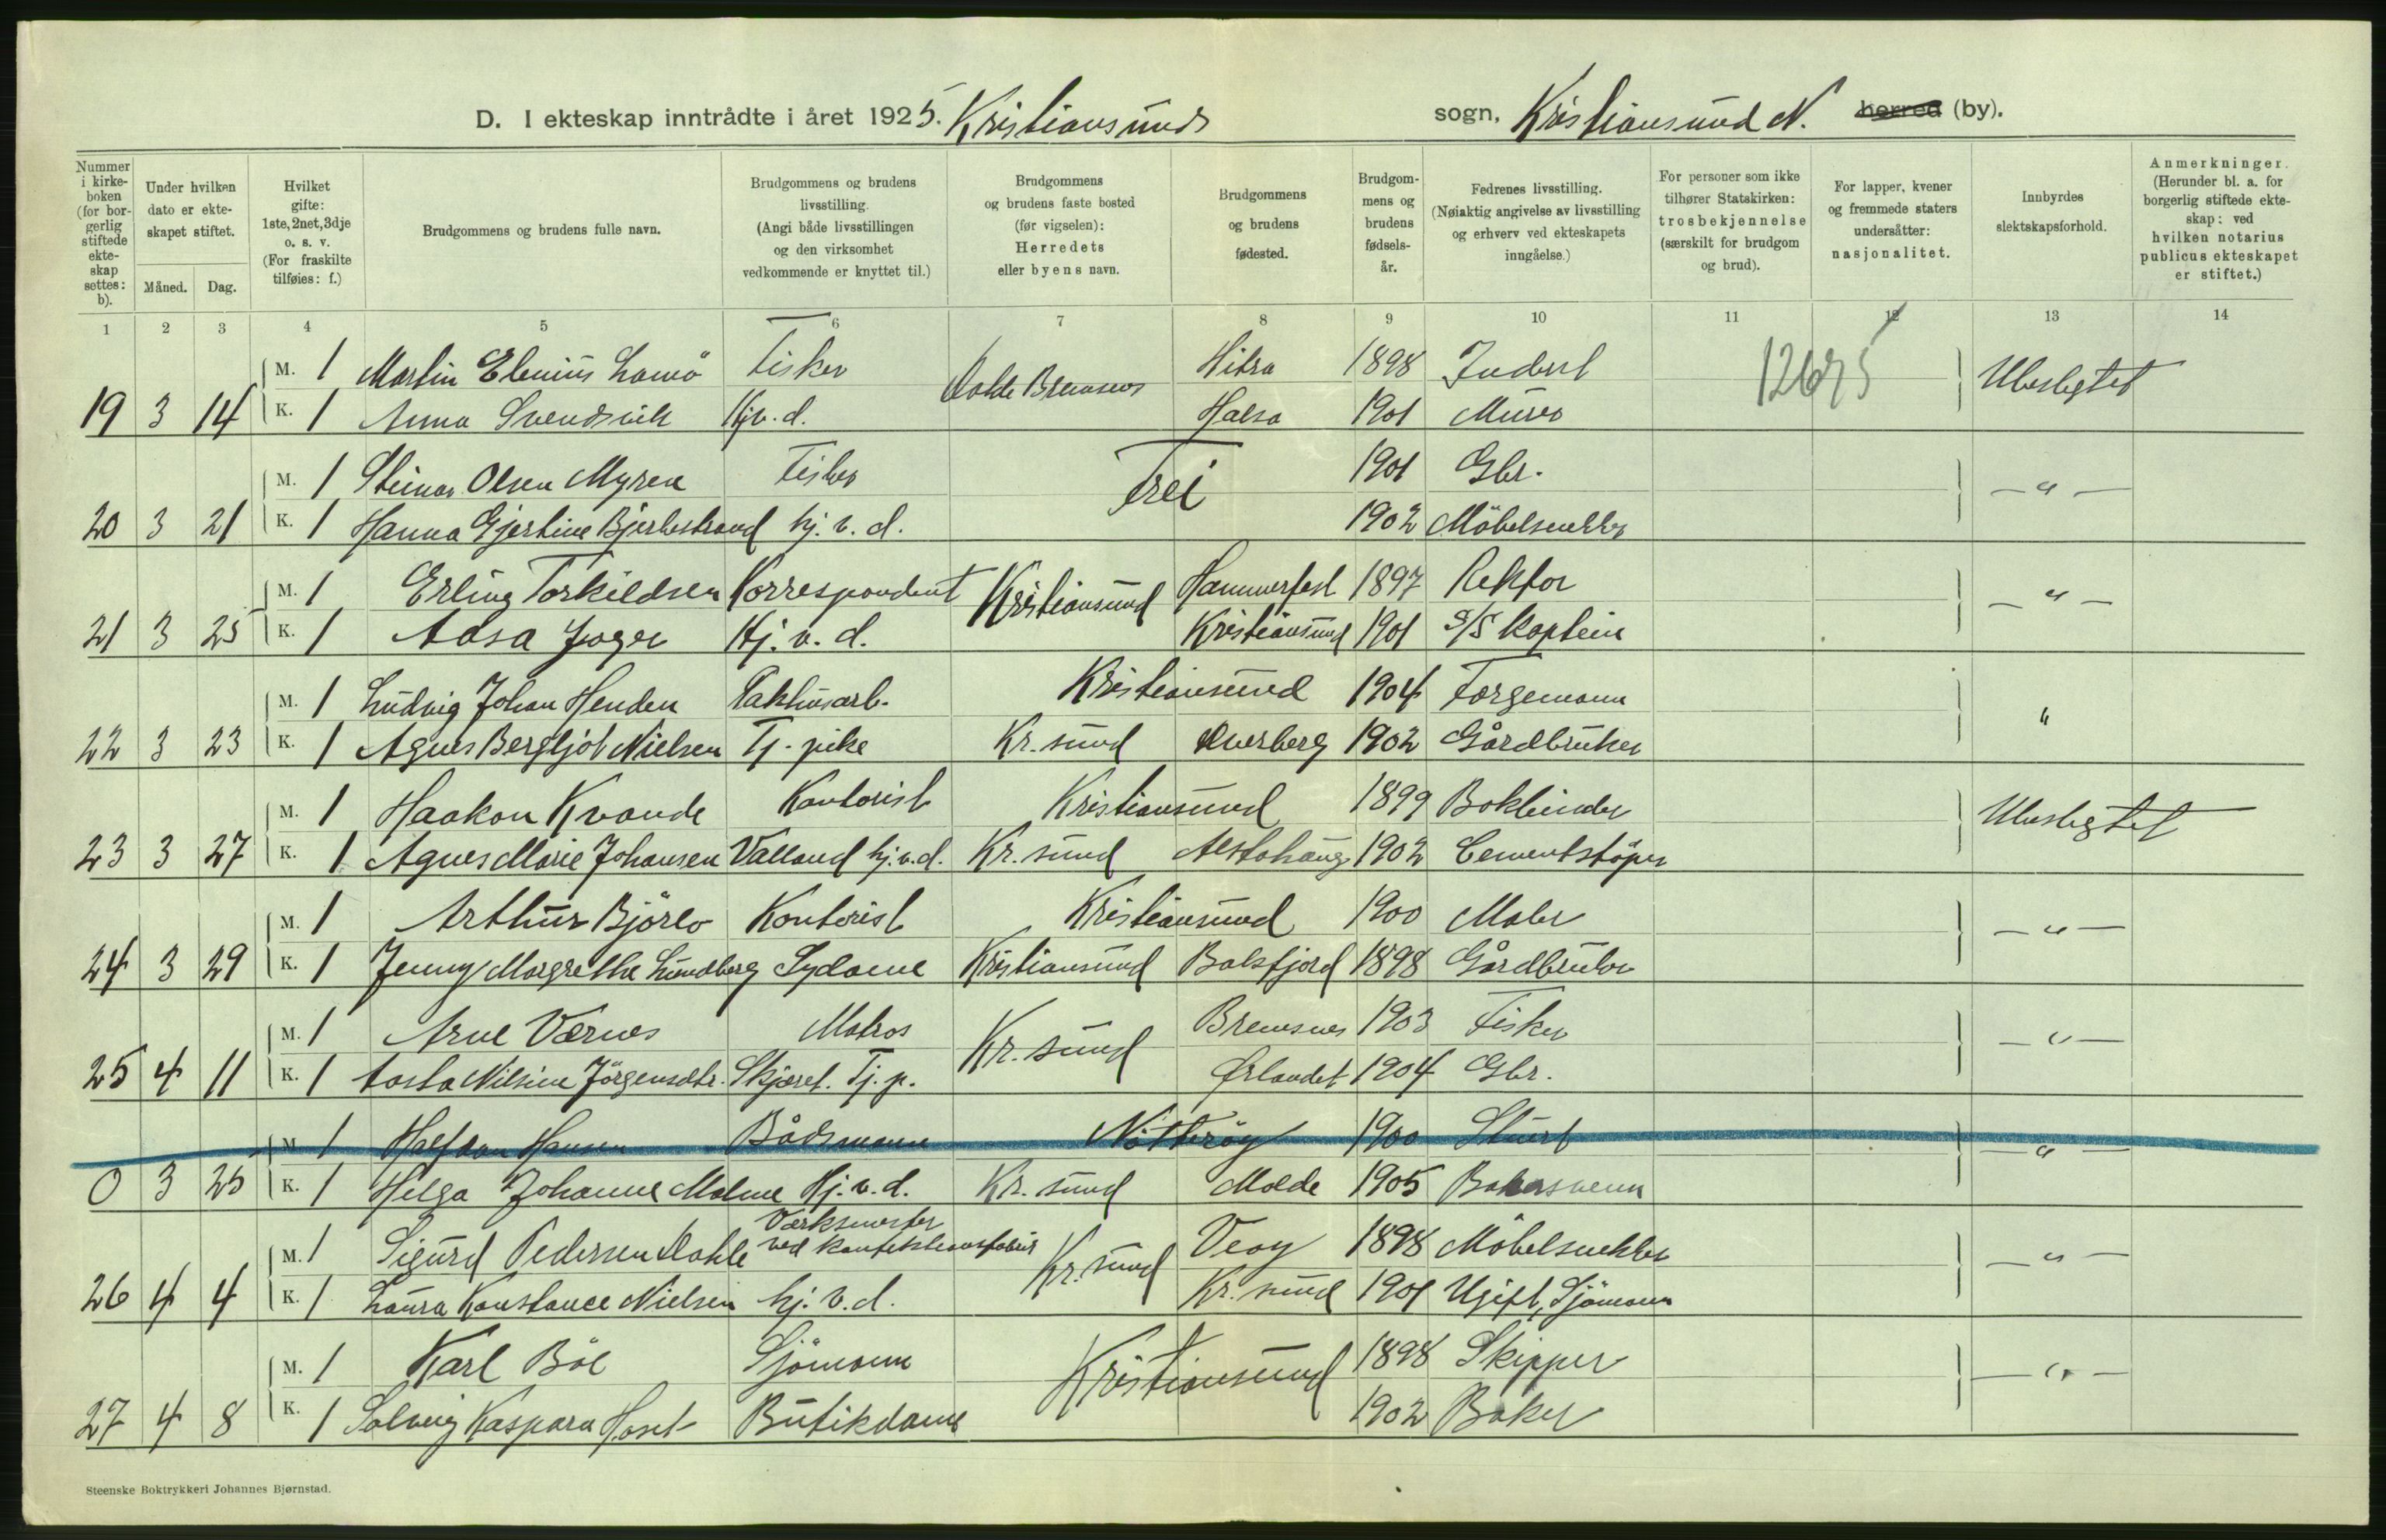 D. I ekteskap inntrådte i året 1925. Kristiansunds sogn, Kristiansund N. herred (by).
Nummer i kirkeboken (for borgerlig stiftede ekteskap settes: b).
Under hvilken dato er ekteskapet stiftet.
Måned. Dag.
Hvilket gifte: 1ste, 2net, 3dje o. s. v. (For fraskilte tilføies: f.)
Brudgommens og brudens fulle navn.
Brudgommens og brudens livsstilling. (Angi både livsstillingen og den virksomhet vedkommende er knyttet til.)
Brudgommens og brudens faste bosted (før vigselen): Herredets eller byens navn.
Brudgommens og brudens fødested.
Brudgommens og brudens fødselsår.
Fedrenes livsstilling. (Nøiaktig angivelse av livsstilling og erhverv ved ekteskapets inngåelse.)
For personer som ikke tilhører Statskirken: trosbekjennelse (særskilt for brudgom og brud).
For lapper, kvener og fremmede staters undersåtter: nasjonalitet.
Innbyrdes slektskapsforhold.
Anmerkninger. (Herunder bl. a. for borgerlig stiftede ekteskap: ved hvilken notarius publicus ekteskapet er stiftet.)
1 2 3 4 5 6 7 8 9 10 11 12 13 14
M. 1 Martin Elenius Lamö Fisker Hitra 1898 Inderst 12695 Ubeslegtet
19 3 14 K. 1 Anna Svendsvik Hj.v.d. Bremsnes Halsa 1901 Murer
M. 1 Steinar Olsen Myren Fisker Frei 1901 Gbr. — " —
20 3 21 K. 1 Hanna Gjertine Bjerkestrand hj. v. d. 1902 Möbelsnekker
M. 1 Erling Torkildsen Korrespondent Kristiansund Hammerfest 1897 Rektor — " —
21 3 25 K. 1 Aasa Jager Hj. v. d. Kristiansund 1901 S/S Kaptein
M. 1 Ludvig Johan Henden Pakhusarb. Kristiansund 1904 Færgemann "
22 3 23 K. 1 Agnes Bergljot Nielsen Tj. pike Kr. sund 1902 Gårdbruker
M. 1 Haakon Kvande Kontorist Kristiansund 1899 Bokbinder Ubeslegtet
23 3 27 K. 1 Agnes Marie Johansen Valland hj.v.d. Kr. sund Alstahaug 1902 Cementstöper
M. 1 Arthur Björlo Kontorist Kristiansund 1900 Maler — " —
24 3 29 K. 1 Jenny Margrethe Lundberg Sydame Kristiansund Balsfjord 1898 Gårdbruker
M. 1 Arne Værnes Matros Kr. sund Bremsnes 1903 Fisker — " —
25 4 11 K. 1 Aasta Nilsine Jörgensdtr. Skjæret. Tj. p. Ørlandet 1904 Gbr.
M. 1 Halfdan Hansen Bådsmann Nötteröy 1900 Stuert — " —
0 3 25 K. 1 Helga Johanne Malme Hj. v. d. Kr. sund Molde 1905 Bakersvenn
M. 1 Sigurd Pedersen Dahle Verksmester ved konfeksionsfabrik Kr. sund Veøy 1898 Möbelsnekker — " —
26 4 4 K. 1 Laura Konstance Nielsen hj. v. d. Kr. sund 1901 Ugift, Sjömann
M. 1 Karl Böe Sjömann Kristiansund 1898 Skipper — " —
27 4 8 K. 1 Solveig Kaspara Hoset Butikdame 1902 Baker
Steenske Boktrykkeri Johannes Bjørnstad.